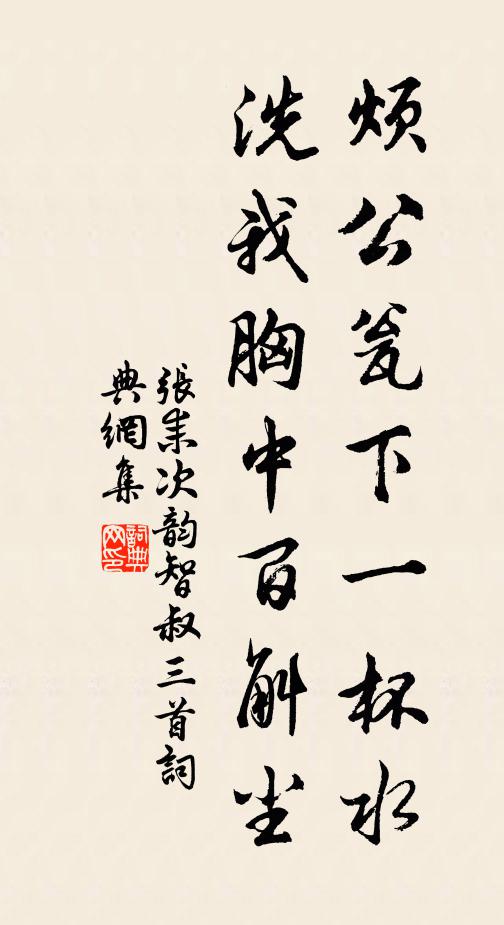 烦公瓮下一杯水
洗我胸中百斛尘
張耒次韵智叔三首詞
典網集
詞典
网印